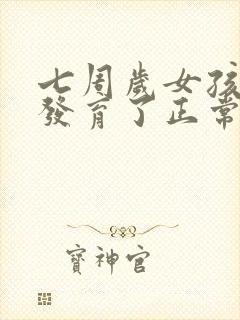 七周歲女孩
發育了正常
寶神官